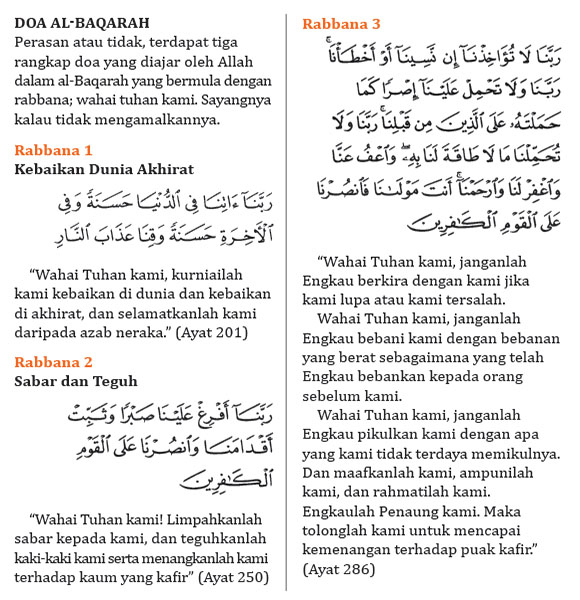 DOA AL-BAQARAH
Perasan atau tidak, terdapat tiga
rangkap doa yang diajar oleh Allah
dalam al-Baqarah yang bermula dengan
rabbana; wahai tuhan kami. Sayangnya
kalau tidak mengamalkannya.
Rabbana 1
Kebaikan Dunia Akhirat
رَبَّنَآ ءَاتِنَا فِى ٱلدُّنْيَا حَسَنَةً وَفِى
ٱلْأَخِرَةِ حَسَنَةً وَقِنَا عَذَابَ ٱلنَّارِ
“Wahai Tuhan kami, kurniailah
kami kebaikan di dunia dan kebaikan
di akhirat, dan selamatkanlah kami
daripada azab neraka.” (Ayat 201)
Rabbana 2
Sabar dan Teguh
رَبَّنَآ أَفْرِغْ عَلَيْنَا صَبْرًا وَثَبِّتْ
أَقْدَامَنَا وَٱنصُرْنَا عَلَى ٱلْقَوْمِ
ٱلْكَٰفِرِينَ
“Wahai Tuhan kami! Limpahkanlah
sabar kepada kami, dan teguhkanlah
kaki-kaki kami serta menangkanlah kami
terhadap kaum yang kafir” (Ayat 250)
Rabbana 3
رَبَّنَا لَا تُؤَاخِذْنَآ إِن نَّسِينَآ أَوْ أَخْطَأْنَا ۚ
رَبَّنَا وَلَا تَحْمِلْ عَلَيْنَآ إِصْرًا كَمَا
حَمَلْتَهُۥ عَلَى ٱلَّذِينَ مِن قَبْلِنَا ۚ رَبَّنَا وَلَا
تُحَمِّلْنَا مَا لَا طَاقَةَ لَنَا بِهِۦ ۖ وَٱعْفُ عَنَّا
وَٱغْفِرْ لَنَا وَٱرْحَمْنَآ ۚ أَنتَ مَوْلَىٰنَا فَٱنصُرْنَا
عَلَى ٱلْقَوْمِ ٱلْكَٰفِرِينَ
“Wahai Tuhan kami, janganlah
Engkau berkira dengan kami jika
kami lupa atau kami tersalah.
Wahai Tuhan kami, janganlah
Engkau bebani kami dengan bebanan
yang berat sebagaimana yang telah
Engkau bebankan kepada orang
sebelum kami.
Wahai Tuhan kami, janganlah
Engkau pikulkan kami dengan apa
yang kami tidak terdaya memikulnya.
Dan maafkanlah kami, ampunilah
kami, dan rahmatilah kami.
Engkaulah Penaung kami. Maka
tolonglah kami untuk mencapai
kemenangan terhadap puak kafir.”
(Ayat 286)